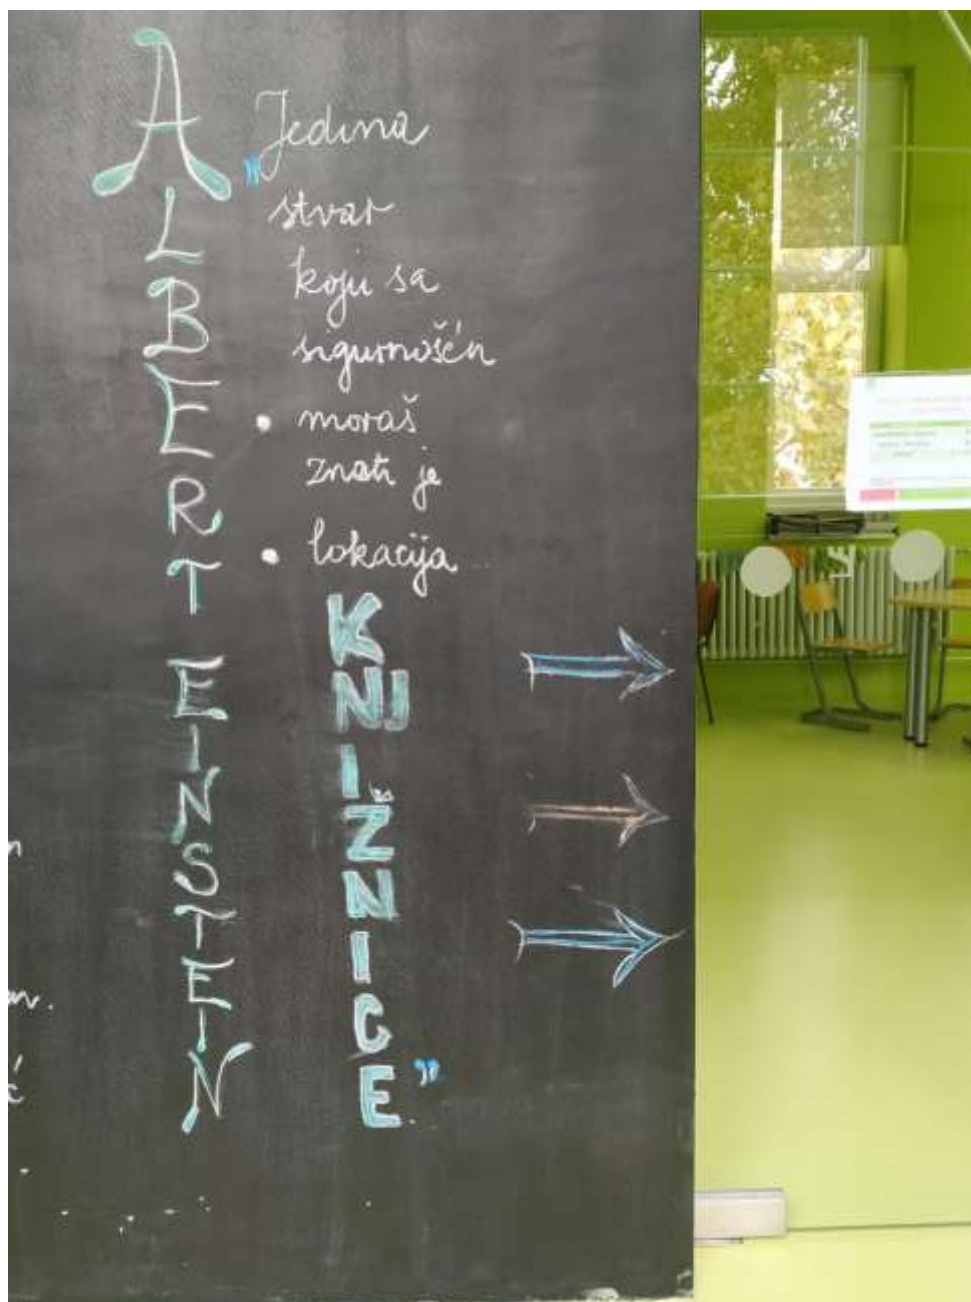 ALBERT EINSTEIN
„Jedina
stvar
koju sa
sigurnošću
• moraš
znati je
• lokacija
KNJIŽNICE”